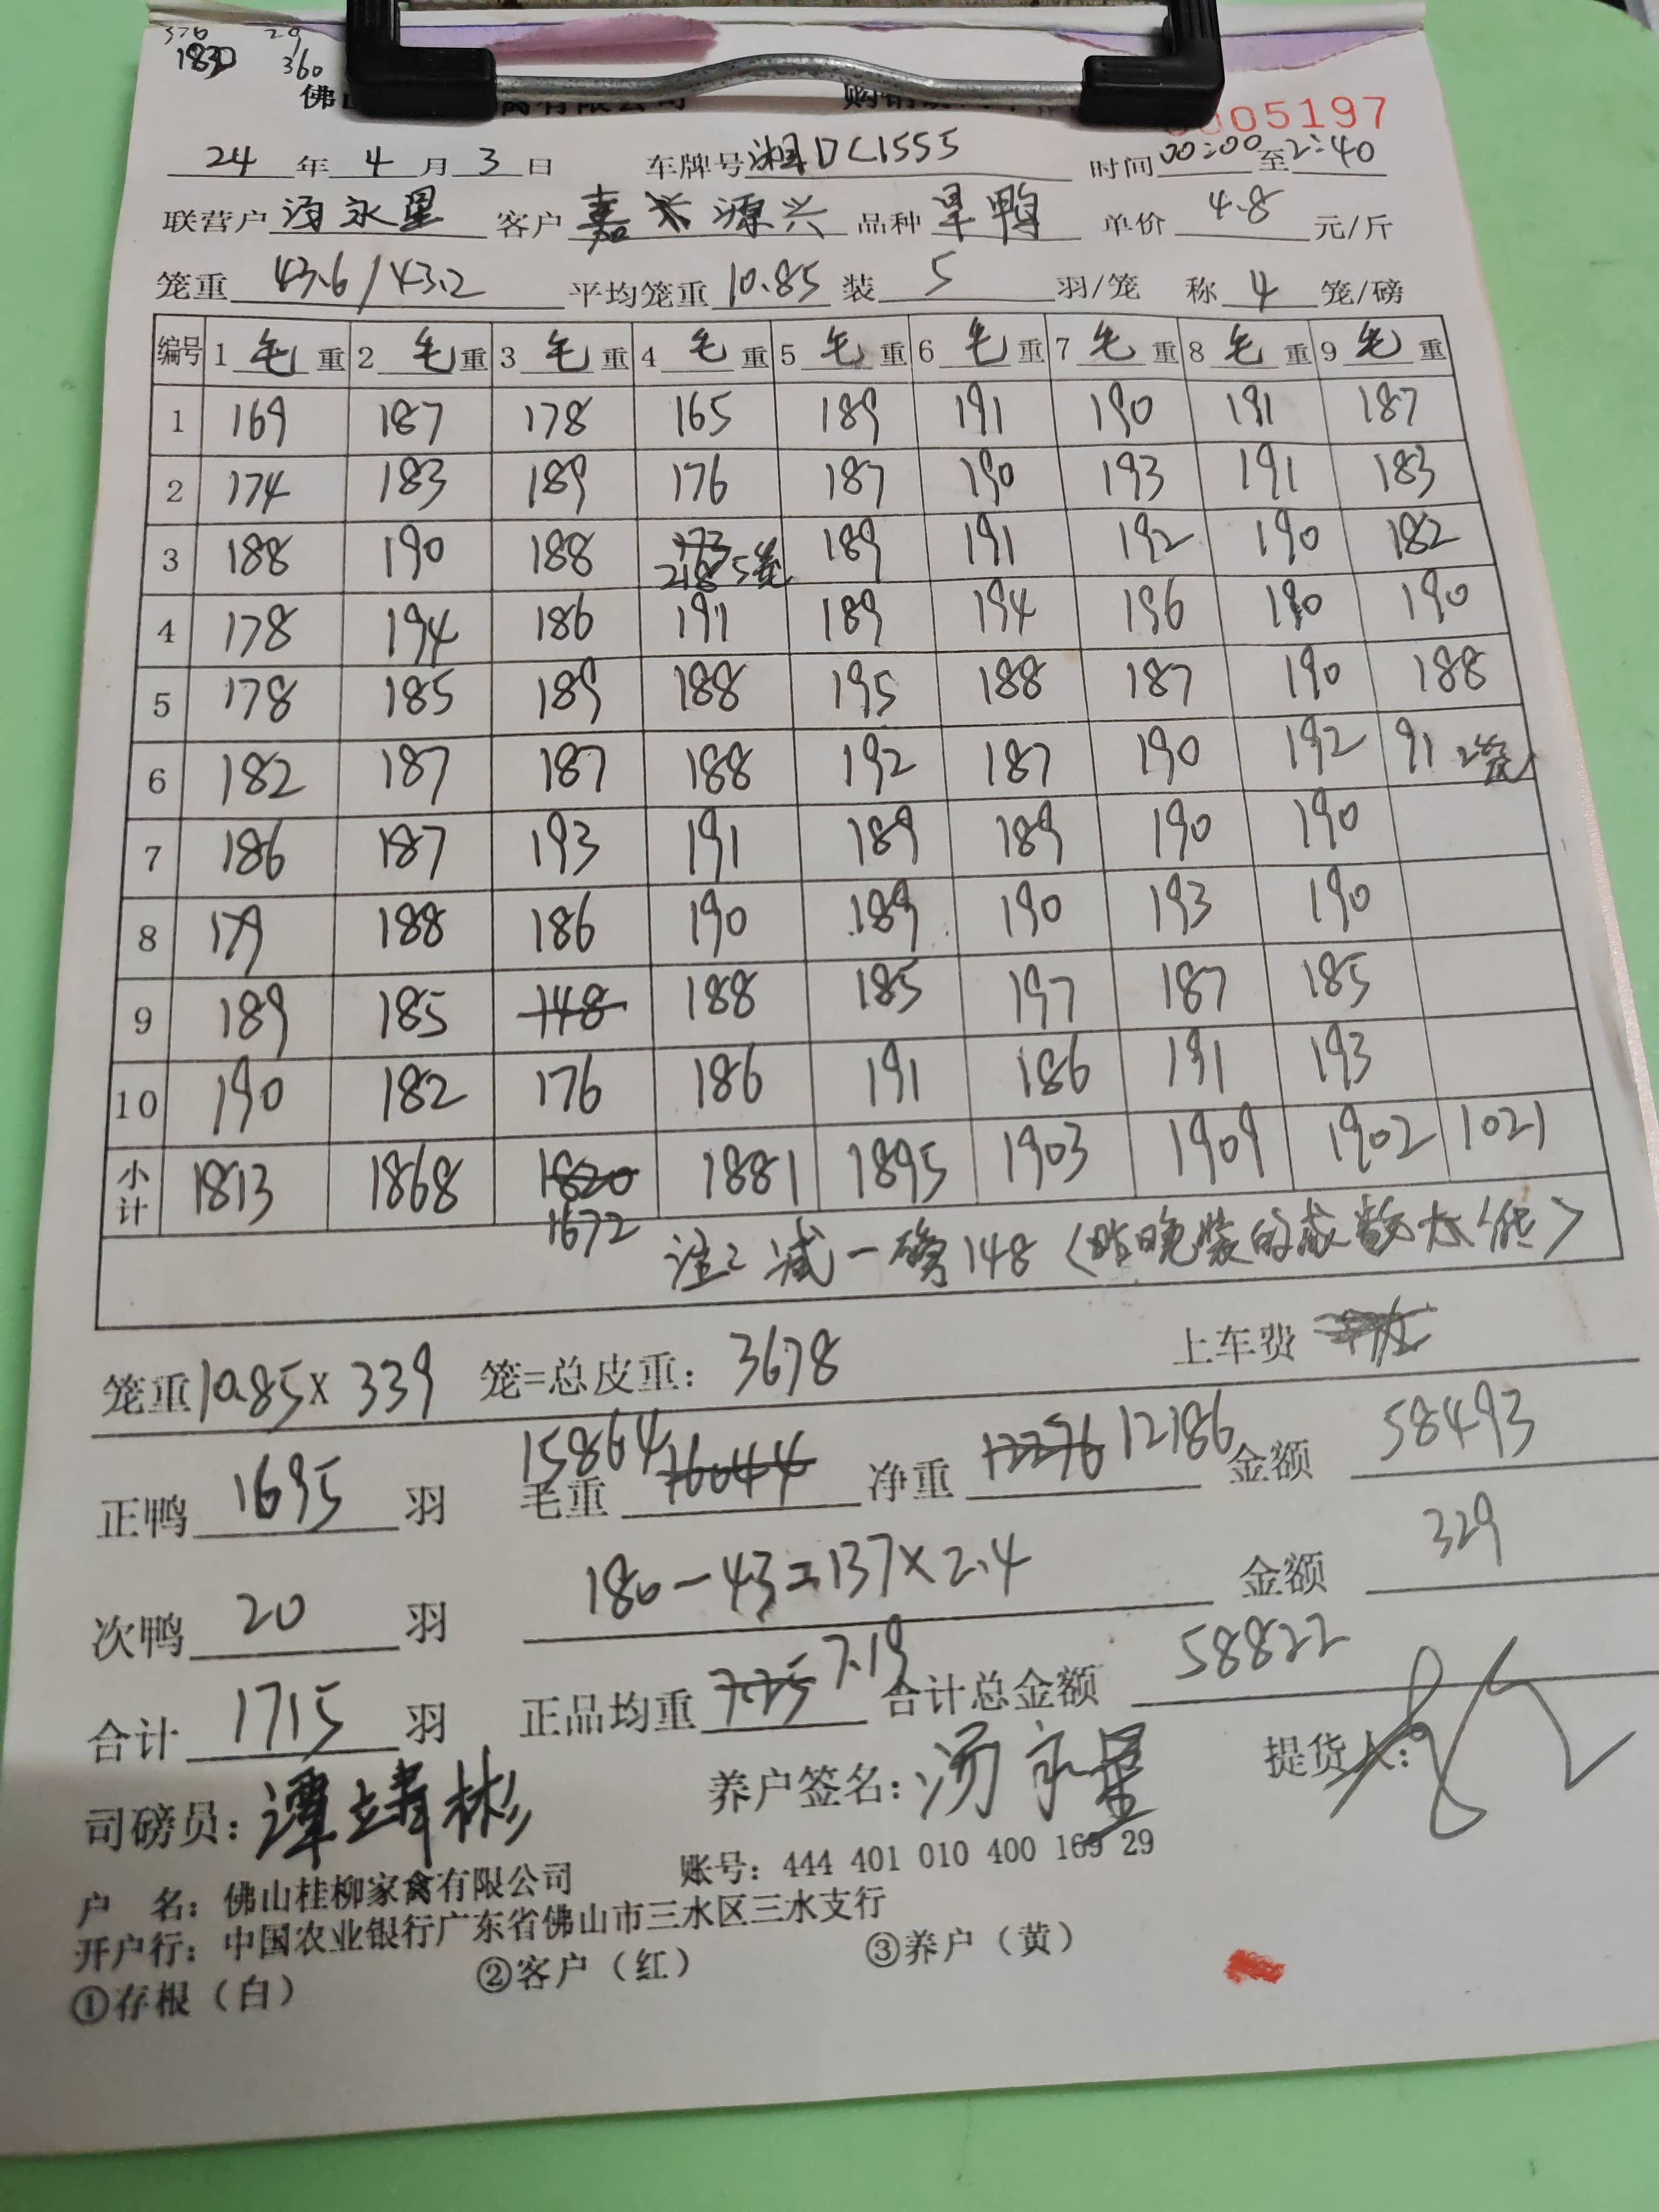 376 29
1830 360
佛 禽有限公司 购销
005197
24 年 4 月 3 日 车牌号 湘DC1555 时间 00:00 至 2:40
联营户 汤永星 客户 嘉禾源兴 品种 旱鸭 单价 4.8 元/斤
笼重 43.6/43.2 平均笼重 10.85 装 5 羽/笼 称 4 笼/磅
编号 1 毛 重 2 毛 重 3 毛 重 4 毛 重 5 毛 重 6 毛 重 7 毛 重 8 毛 重 9 毛 重
1 169 187 178 165 189 191 190 191 187
2 174 183 189 176 187 190 193 191 183
3 188 190 188 173 218 5笼 189 191 192 190 182
4 178 194 186 191 189 194 196 190 190
5 178 185 189 188 195 188 187 190 188
6 182 187 187 188 192 187 190 192 91 2笼
7 186 187 193 191 189 189 190 190
8 179 188 186 190 189 190 193 190
9 189 185 148 188 185 197 187 185
10 190 182 176 186 191 186 191 193
小计 1813 1868 1820 1881 1895 1903 1909 1902 1021
1672
注: 减一磅148（昨晚装的成数太低）
笼重 10.85 X 339 笼=总皮重: 3678 上车费
正鸭 1695 羽 毛重 15864 16044 净重 12276 12186 金额 58493
次鸭 20 羽 180-43=137×2.4 金额 329
合计 1715 羽 正品均重 7.25 7.19 合计总金额 58822
司磅员: 谭靖彬 养户签名: 汤永星 提货人:
户 名: 佛山桂柳家禽有限公司 账号: 444 401 010 400 169 29
开户行: 中国农业银行广东省佛山市三水区三水支行
①存根（白） ②客户（红） ③养户（黄）